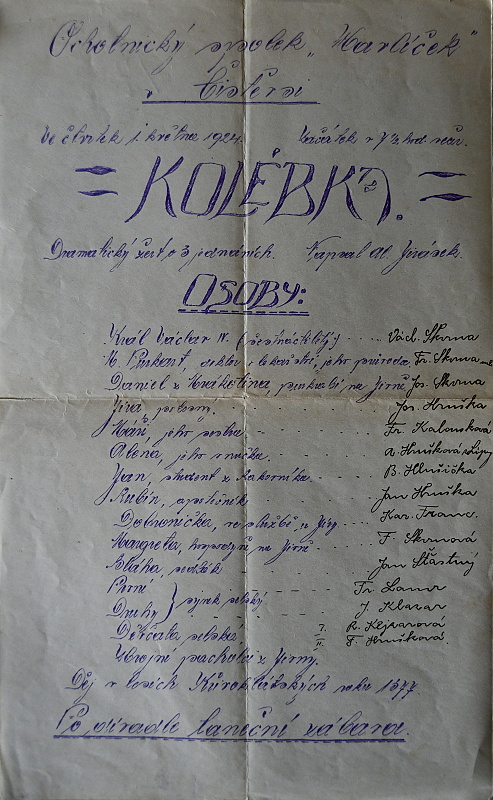 Ochotnický spolek „Havlíček“
v Čistěvsi
Ve čtvrtek 1. května 1924. Začátek v 7 ½ hod. več.
= KOLÉBKA. =
Dramatický žert o 3 jednáních. Napsal Al. Jirásek.
OSOBY:
Král Václav IV. (šestnáctiletý) .... Václ. Skvrna
M. Purkart, doktor v lékařství, jeho průvodce, Fr. Skvrna
Daniel z Kralotina, purkrabí na Žirně Jos. Skvrna
Jíra, pelcom. . . . . Jos. Hruška
Vávra, jeho soused . . . . Fr. Kalousková
Alena, jeho vnučka. . . . . A. Hrušková
Jan, student z Rakovníka. . . . B. Hlušička
Rubín, apatekář . . . . Jan Hruška
Dobronička, ve službě u Jíry .... Kar. Franc.
Margreta, hospodyně na Žirně . . . . F. Skvrnová
Bláha, sedlák . . . . Jan Šťastný
První . . . . Fr. Laur
Druhý } synek selský . . . . J. Klazar
Děvčata selská I. R. Klejzarová
II. F. Hrušková
Zbrojní pacholci z Žirny.
Děj v lesích Křivoklátských roku 1377
Po divadle taneční zábava.